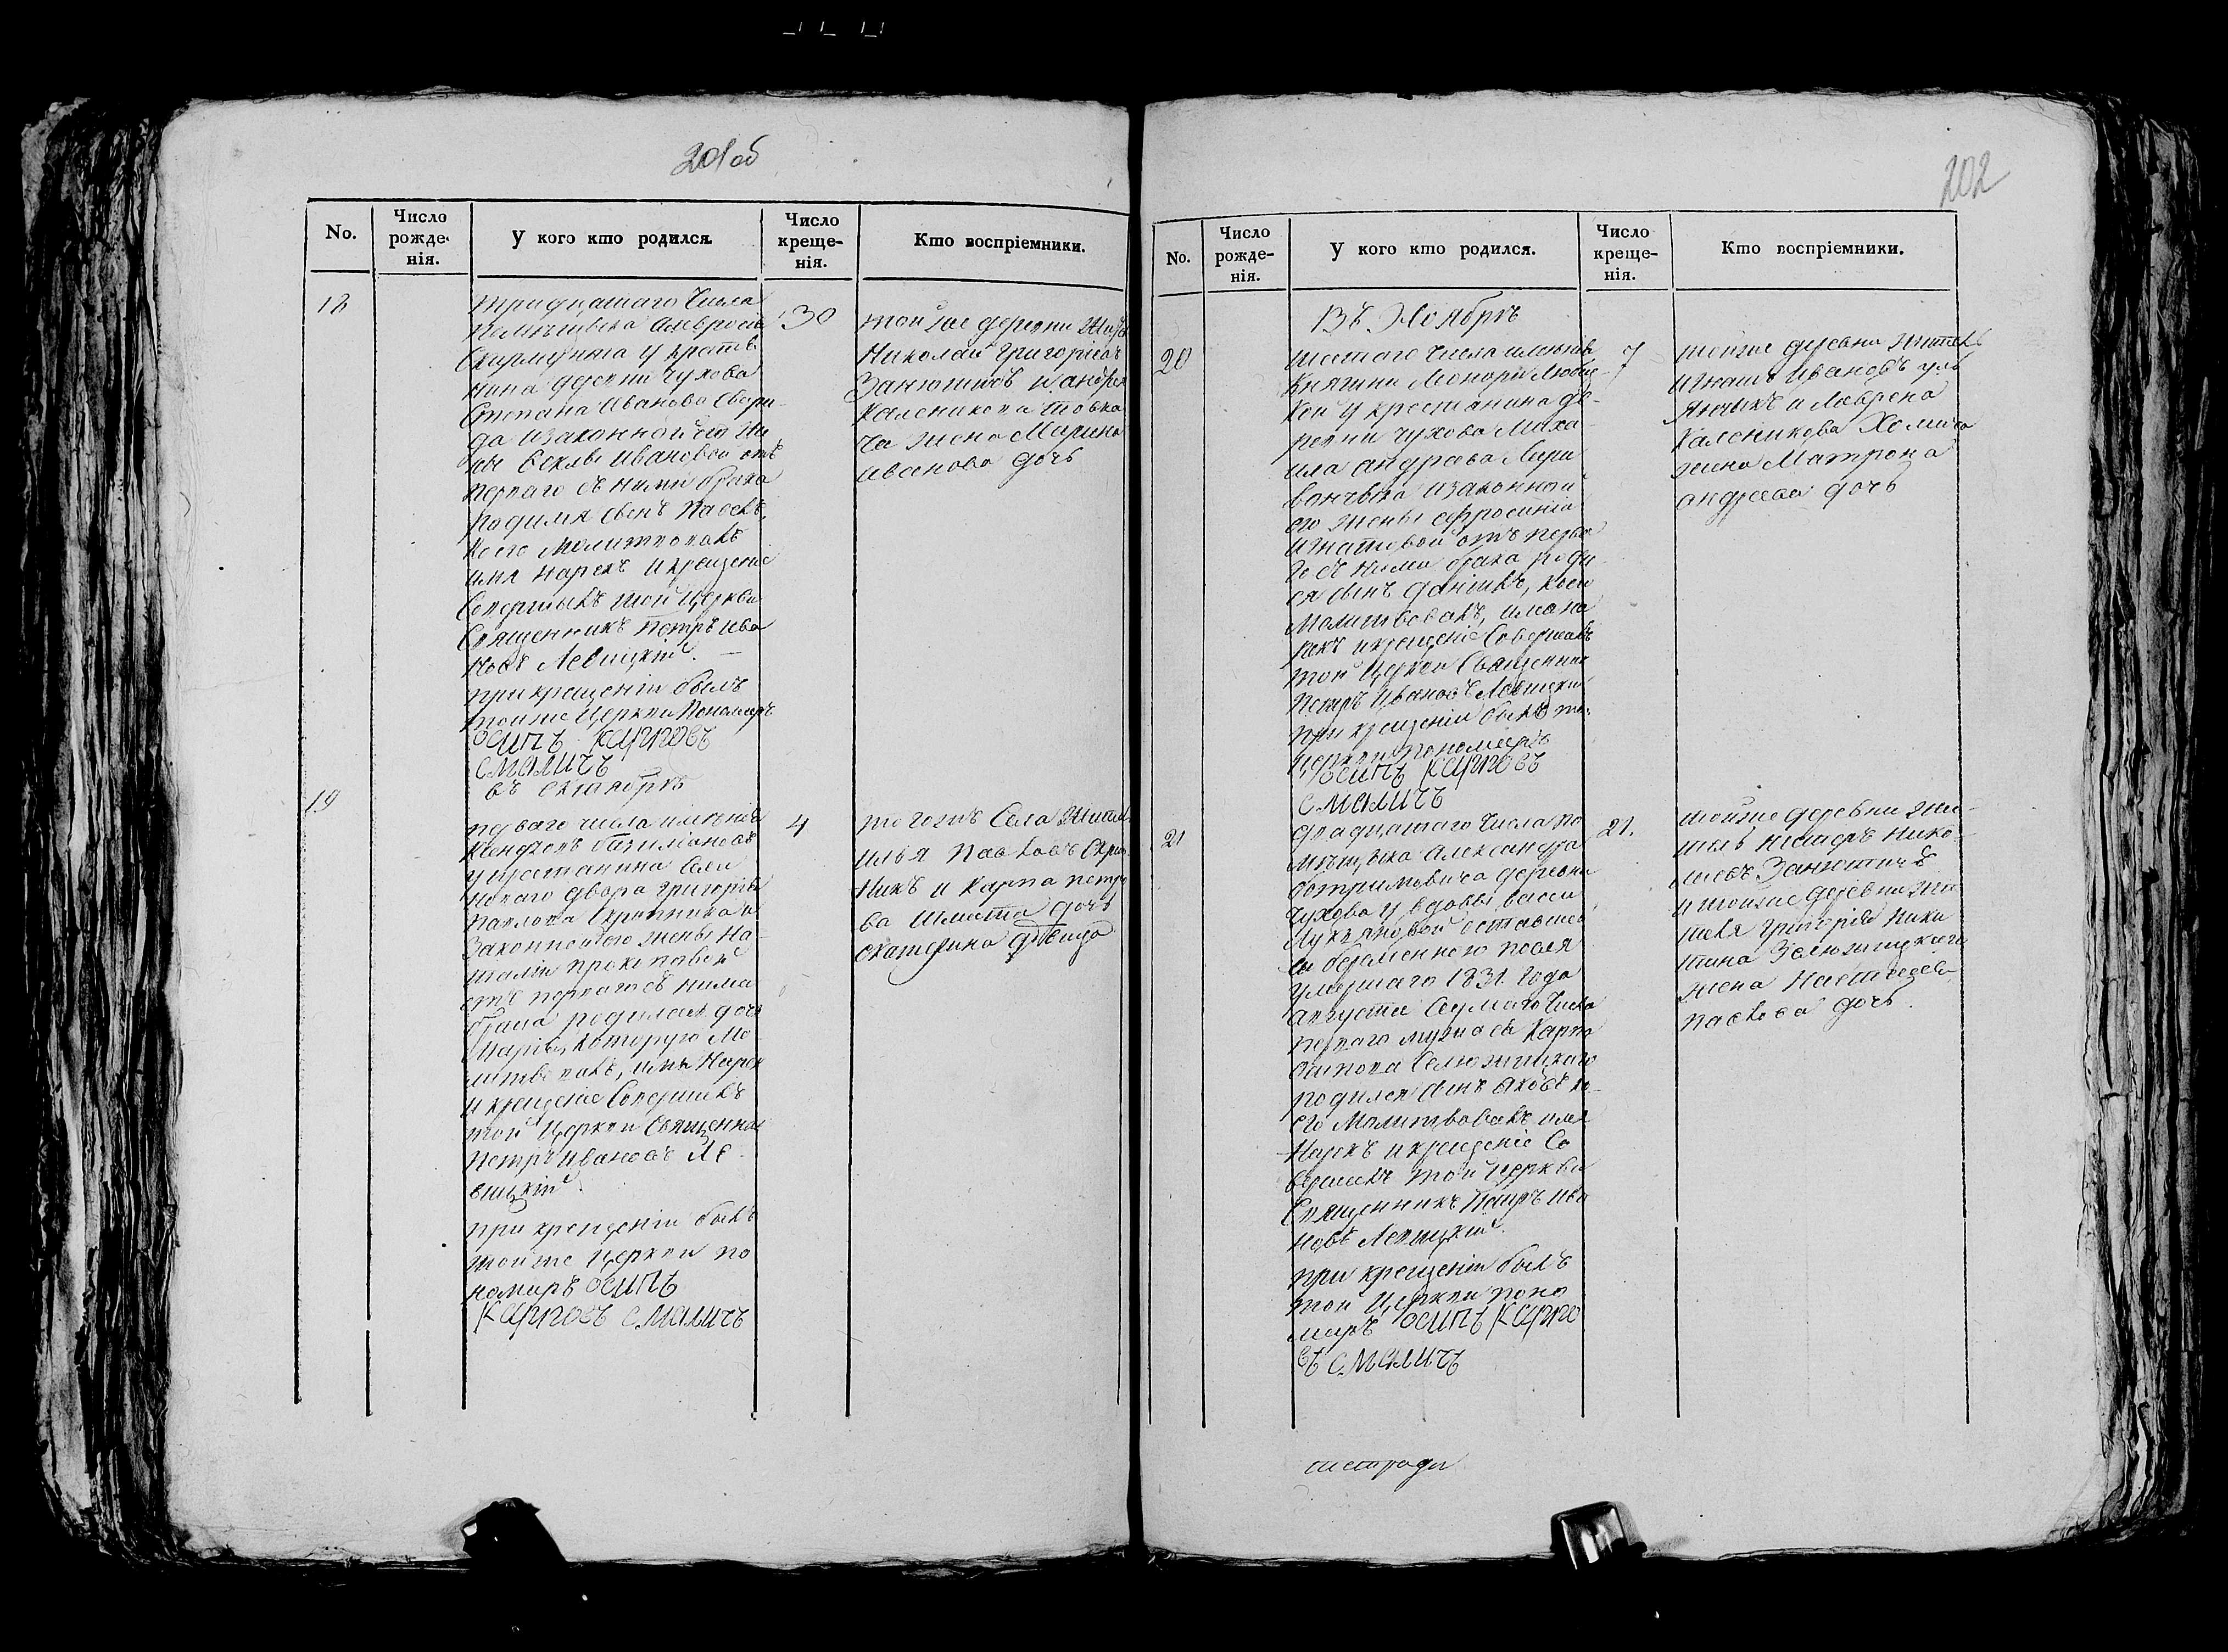 201об
No.
Число рожде-нія.
У кого кто родился.
Число креще-нія.
Кто воспріемники.
18
тридцатаго Числа
30
Скирмунта у крестья
нина деревни Чухова
Степана Иванова
да изаконной его же
ны Феклы Ивановой отъ
перваго съ ними брака
родился сынъ
коего молитвовалъ
имя нарекъ и крещение
Совершилъ той Церкви
Священникъ Петръ Ива
новъ Левицкій. —
при крещеніи былъ
тойже Церкви Пономаръ
осипъ карповъ
смаличъ
той же деревни
Николай Григоріевъ
Занютичъ и андрея
Калеников
ча жена Марина
иванова дочь
въ октябрѣ
19
перваго числа имѣнія
4
крестьянина Села
новаго двора Григорія
Павлова Скрипника и
Законной его жены На-
таліи прокоповой
отъ перваго съ ними
брака родилась дочь
Марія, которую мо
литвовалъ, имя Нарек
и крещеніе Совершилъ
той Церкви Священник
Петръ Ивановъ Ле-
вицкій.
при крещеніи былъ
тойже Церкви по
номаръ осипъ
карповъ смаличъ
тогожъ Села жител
илья павловъ Скри
никъ и Карпа петро
ва Шмата дочь
екатерина дѣвица
202
No.
Число рожде-нія.
У кого кто родился.
Число креще-нія.
Кто воспріемники.
Въ Ноябрѣ
20
шестаго числа имѣнія
7
Княгини
кой у крестьянина де-
ревни чухова Миха
ила андреева
изаконной
его жены ефросиніи
Игнатовой отъ перва
го съ ними брака роди
ся сынъ даніилъ, коего
Молитвовалъ, имя на
рекъ и крещеніе Совершилъ
той Церкви Священник
Петръ Ивановъ Левицкій
при крещеніи былъ той
церкви пономаръ
осипъ карповъ
смаличъ
тойже деревни житель
Игнатъ Ивановъ
и Лаврена
Каленикова Хомича
жена Матрона
андреева дочь
21
двадцатаго Числа по
21.
мѣщика Александра
ботримовича деревни
Чухова у вдовы васси
Лукьяновой оставшей
ся беременною после
умершаго 1831 года
августа Седмаго Числа
перваго мужа ея Карпа
осипова
родился сынъ яковъ ко-
его Молитвовалъ имя
Нарекъ и крещеніе Со
вершилъ той Церкви
Священникъ Петръ Ива
новъ Левицкій.
при крещеніи былъ
той Церкви поно
маръ осипъ карпо
въ смаличъ
тойже деревни жи-
тель Нестеръ Нико-
лаевъ Занютичъ
и тойже деревни жи
теля Григорія Ники
тина
жена Настасія
павлова дочь.